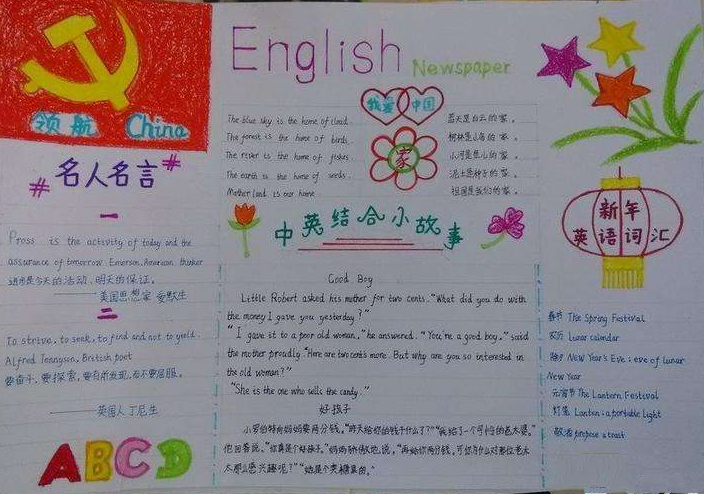 领航 China
# 名人名言 #
一
Pross is the activity of today and the
assurance of tomorrow. Emerson, American thinker
进步是今天的活动.明天的保证。
——美国思想家 爱默生
二
To strive, to seek, to find and not to yield.
Alfred Tennyson, British poet
要奋斗,要探索,要有所发现,而不要屈服。
——英国人丁尼生
ABCD
English Newspaper
我爱 中国
家
The blue sky is the home of cloud.
The forest is the home of birds.
The river is the home of fishes.
The earth is the home of seeds.
Mother land is our home
蓝天是白云的家。
树林是小鸟的家。
小河是鱼儿的家。
泥土是种子的家。
祖国是我们的家。
中英结合小故事
Good Boy
Little Robert asked his mother for two cents. "What did you do with
the money I gave you yesterday?"
"I gave it to a poor old woman," he answered. "You're a good boy," said
the mother proudly. "Here are two cents more. But why are you so interested in
the old woman?"
"She is the one who sells the candy."
好孩子
小罗伯特向妈妈要两分钱。"昨天给你的钱干什么了?""我给了一个可怜的老太婆,"
他回答说。"你真是个好孩子,"妈妈骄傲地说,"再给你两分钱,可你为什么对那位老太
太那么感兴趣呢?""她是个卖糖果的。"
新年
英语词汇
春节 The Spring Festival
农历 Lunar calendar
除夕 New Year's Eve; eve of lunar
New Year
元宵节 The Lantern Festival
灯笼 Lantern: a portable light
敬酒 propose a toast